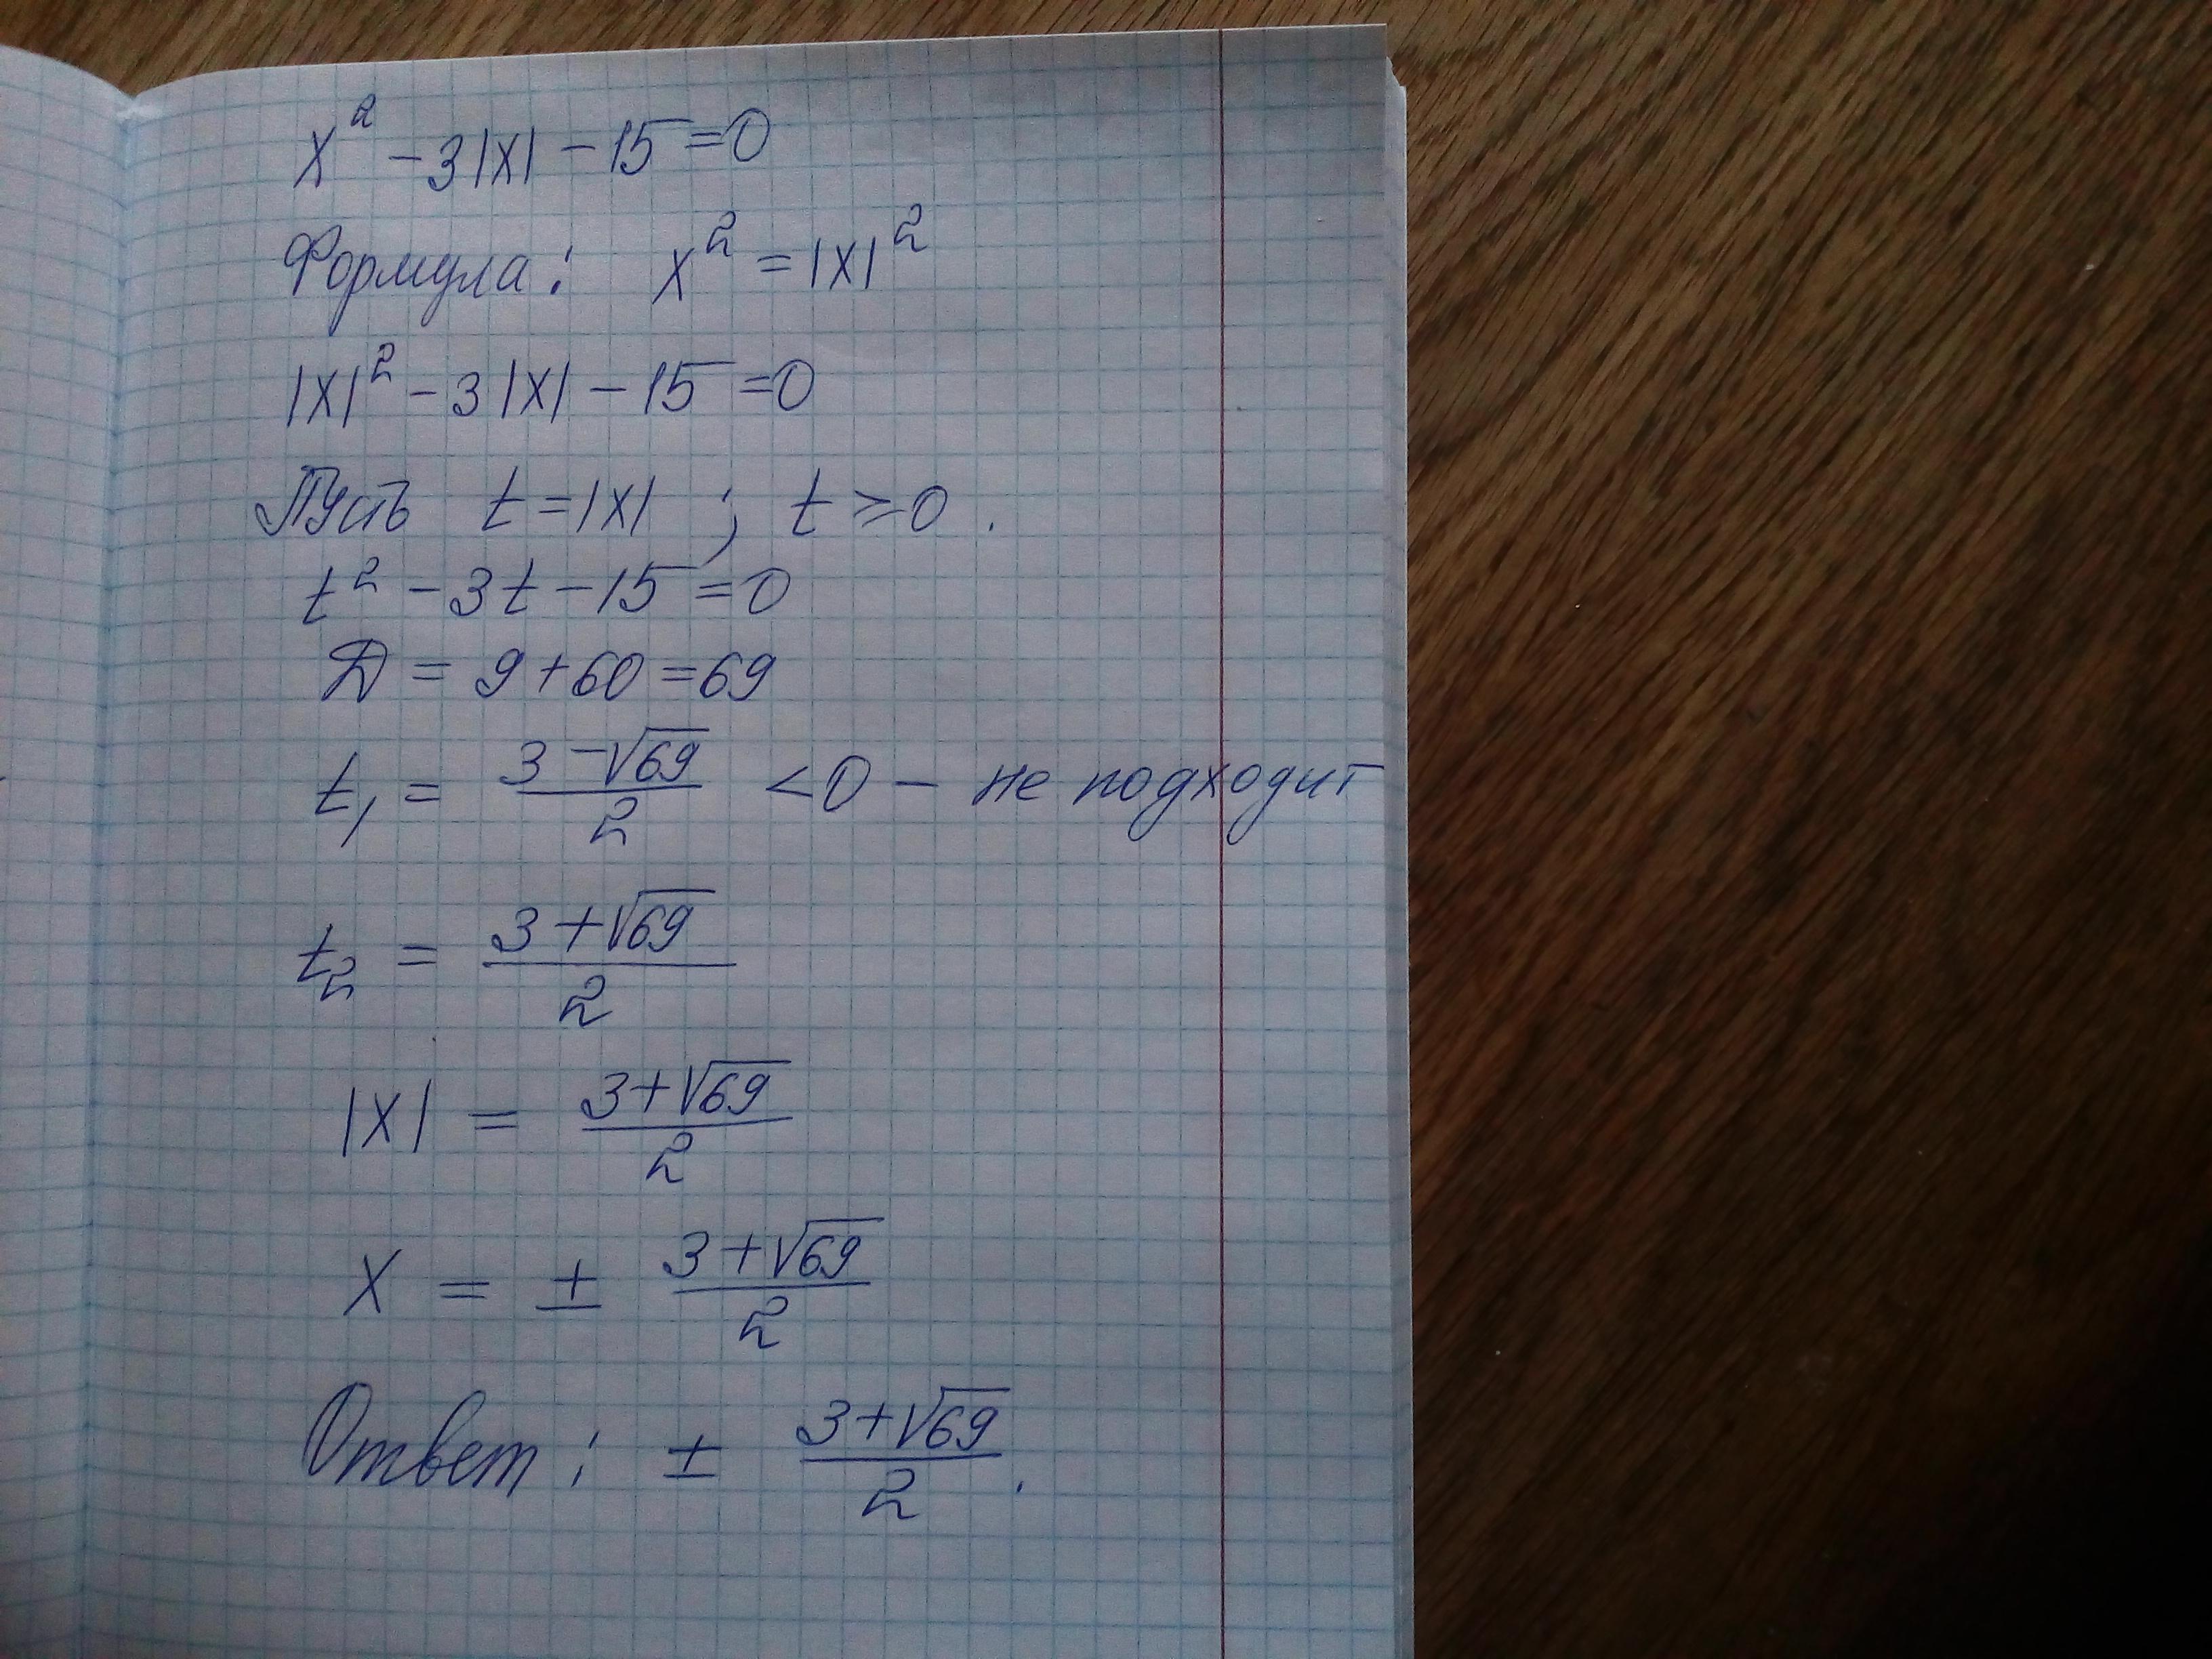 x² - 3|x| - 15 = 0
Формула: x² = |x|²
|x|² - 3|x| - 15 = 0
Пусть t = |x| ; t ≥ 0.
t² - 3t - 15 = 0
Д = 9 + 60 = 69
t₁ = (3 - √69)/2 < 0 - не подходит
t₂ = (3 + √69)/2
|x| = (3 + √69)/2
x = ± (3 + √69)/2
Ответ: ± (3 + √69)/2.